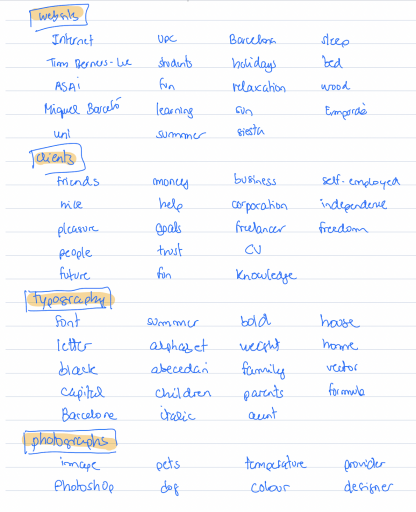 websites
Internet UPC Barcelona sleep
Tim Berners-Lee students holidays bed
ASAI fun relaxation wood
Miquel Barceló learning sun Empordà
uni summer siesta
clients
friends money business self-employed
nice help corporation independence
pleasure goals freelancer freedom
people trust CV
future fun knowledge
typography
font summer bold house
letter alphabet weight home
black abecedari family vector
capital children parents formula
Barcelona italic aunt
photographs
image pets temperature provider
Photoshop dog colour designer